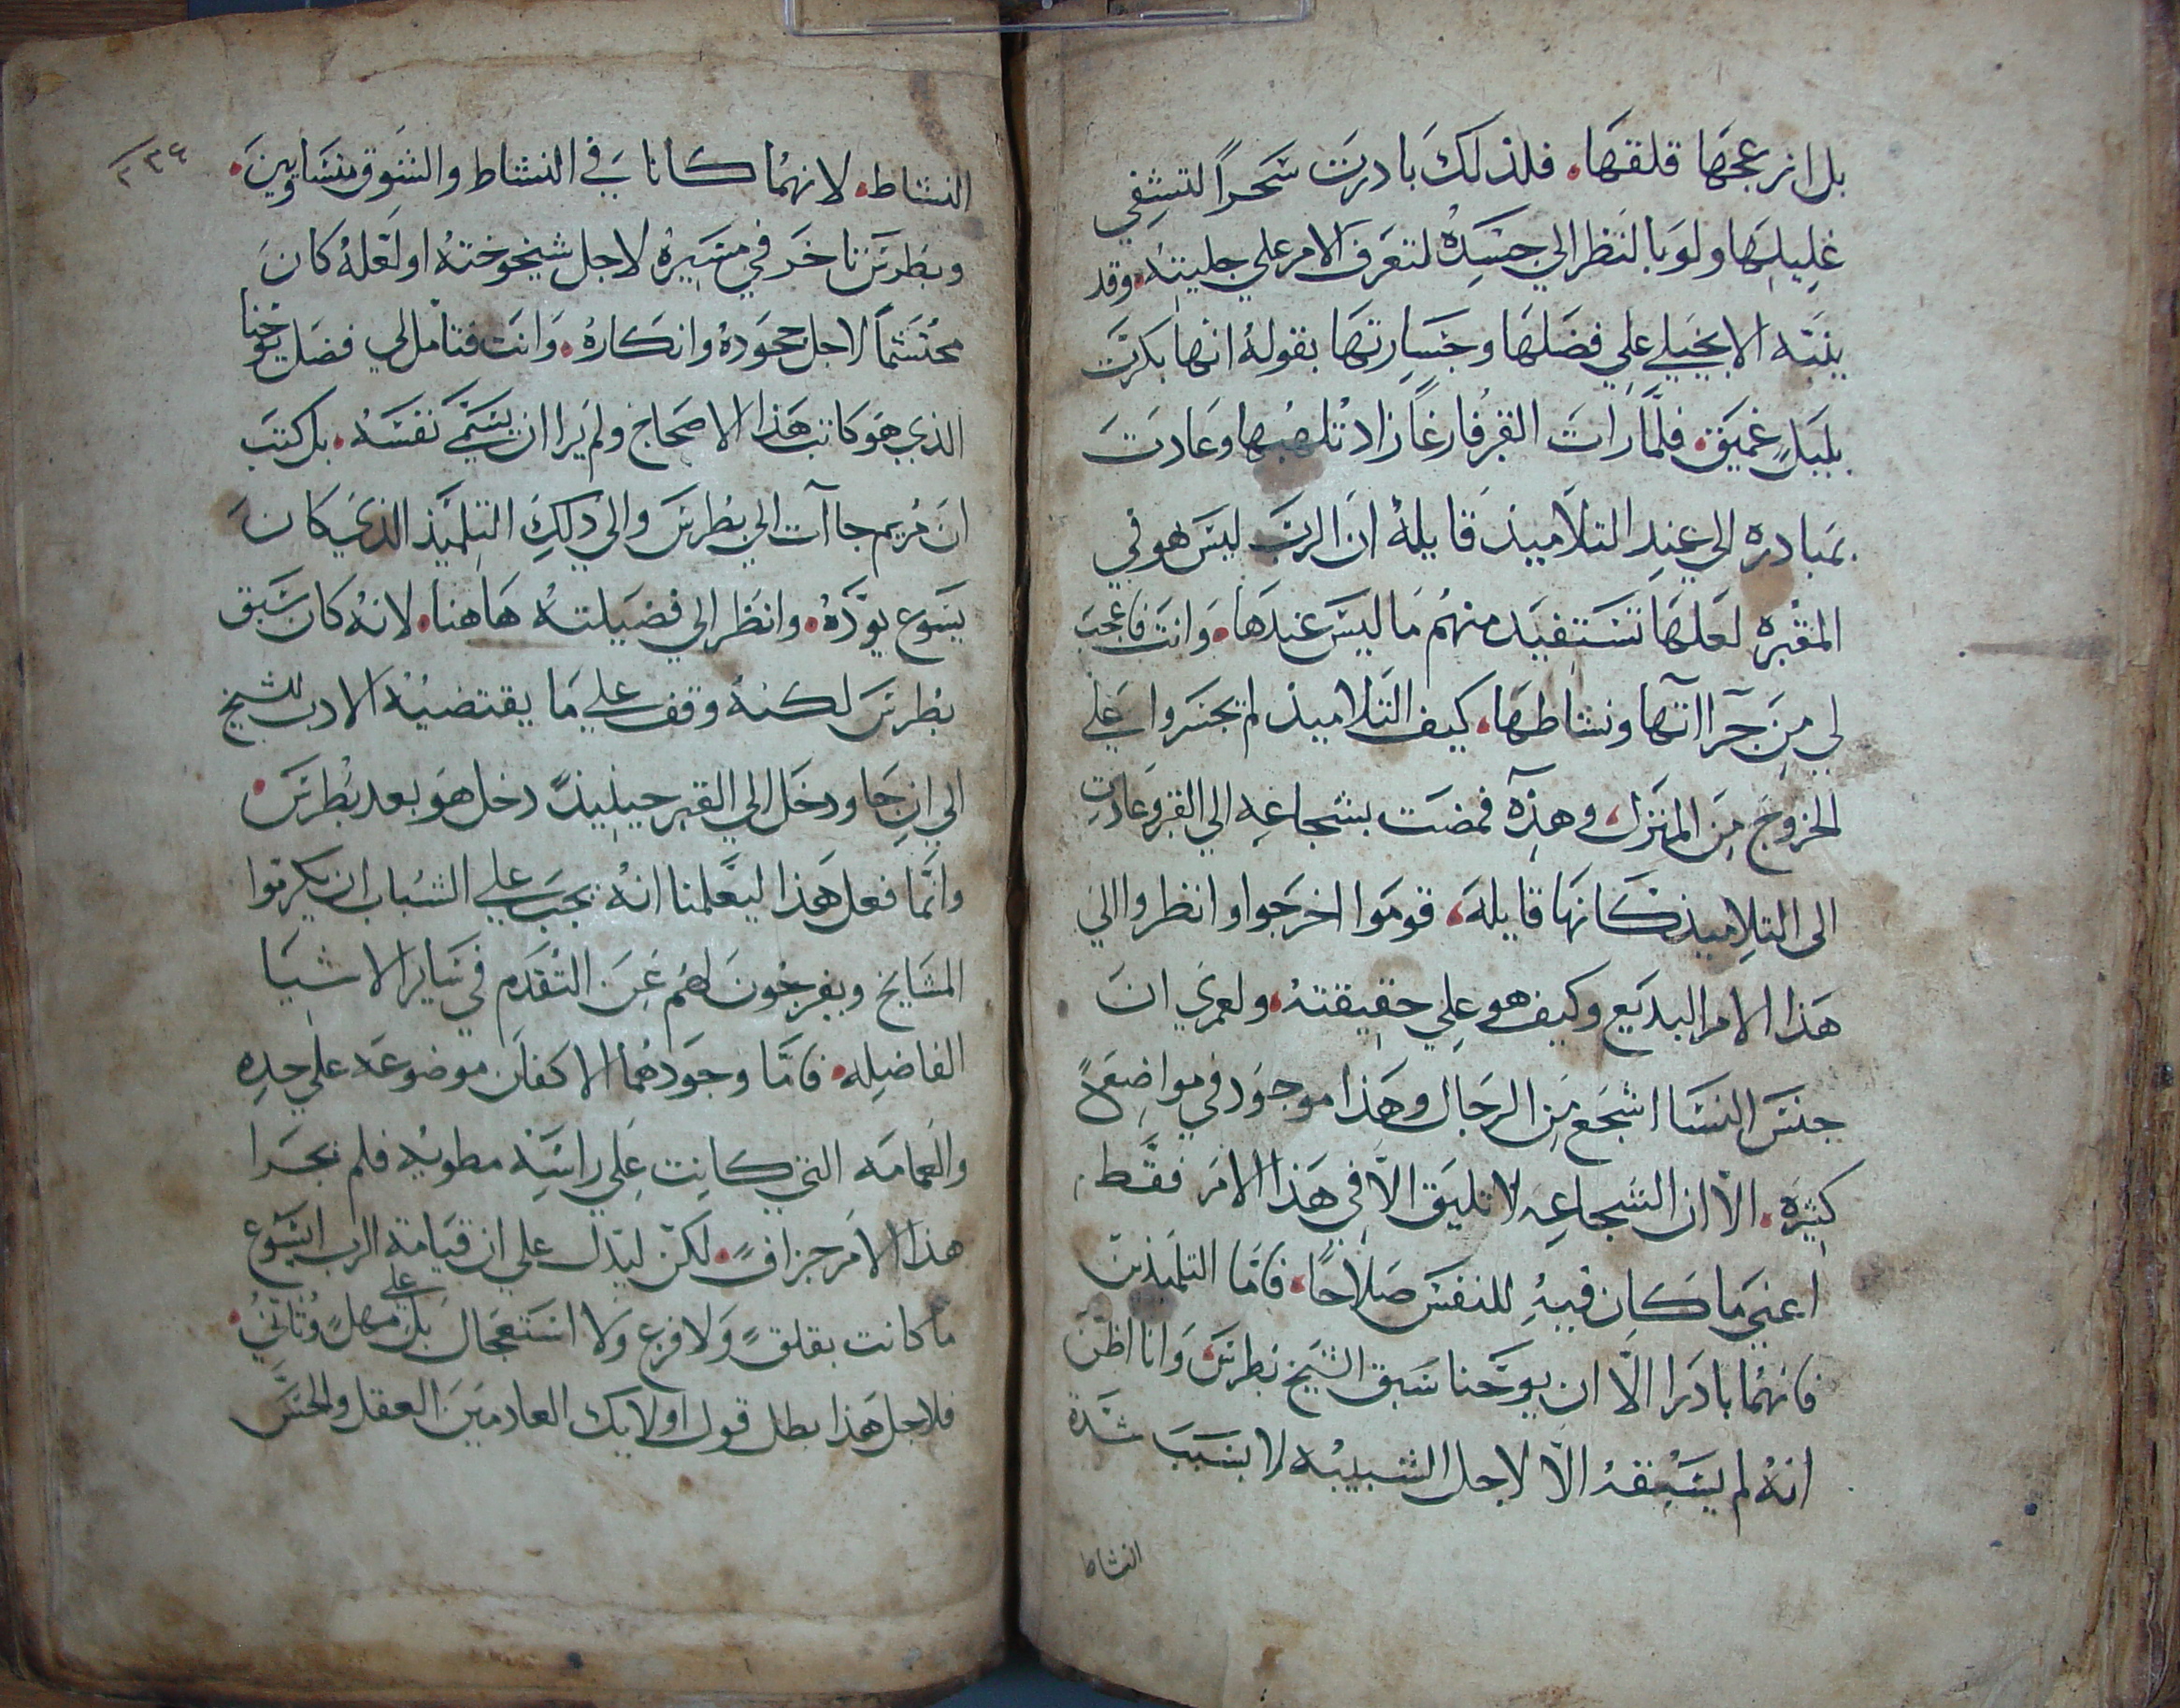 بل ازعجها قلقها. فلذلك بادرت سَحرًا لتشفي
غليلها ولو بالنظر الي جسده لتعرف الامر علي جليته. وقد
ينبّه الانجيلي علي فضلها وجسارتها بقوله انها بكرت
بليلٍ غميق. فلمّا رات القبر فارغاً زاد تلهبها وعادت
مبادره الي عند التلاميذ قايلة ان الرب ليس هو في
المقبره لعلها تستفيد منهم ما ليس عندها. وانت فاعجب
لي من جراآتها ونشاطها. كيف التلاميذ لم يجسروا علي
الخروج من المنزل، وهذه فمضت بشجاعه الي القبر وعادت
الى التلاميذ كانها قايله، قوموا اخرجوا وانظروا الي
هذا الامر البديع وكيف هو علي حقيقته. ولعمري ان
جنس النسا اشجع من الرجال وهذا موجود في مواضع
كثيره. الاّ ان الشجاعه لا تليق الاّ في هذا الامر فقط.
اعني ما كان فيه للنفس صلاحًا. فامّا التلميذين
فانهما بادرا الاّ ان يوحّنا سبق الشيخ بطرس، وانا اظن
انهُ لم يسبقهُ الاّ لاجل الشبيبه لا بسبب شدة
النشاط
٣٣٤
النشاط. لانهما كانا في النشاط والشوق متساويين.
وبطرس تاخر في مسيره لاجل شيخوخته او لعلهُ كان
محتشماً لاجل جحوده وانكاره. وانت فتامل لي فضل يوحنا
الذي هو كاتب هذا الاصحاح ولم يرا ان يسمّي نفسه. بل كتب
ان مريم جاآت الي بطرس والي ذلك التلميذ الذي كان
يسوع يودّه. وانظر الي فضيلته هاهنا. لانه كان سبق
بطرس لكنه وقف علي ما يقتضيه الادب للشيخ
الي ان جا ودخل الي القبر حينيذٍ دخل هو بعد بطرس.
وانّما فعل هذا ليعّلمنا انه يجب علي الشباب ان يكرموا
المشايخ ويفرجون لهم عن التقدم في ساير الاشيا
الفاضله. فامّا وجودهما الاكفان موضوعه علي حده
والعمامه التي كانت علي راسه مطويه فلم يجرا
هذا الامر جزافٍ. لكن ليدل علي ان قيامة الرب ايسوع
ما كانت بقلقٍ ولا فزع ولا استعجال بل علي مهلٍ وتاني.
فلاجل هذا بطل قول اولايك العادمين العقل والحسّ